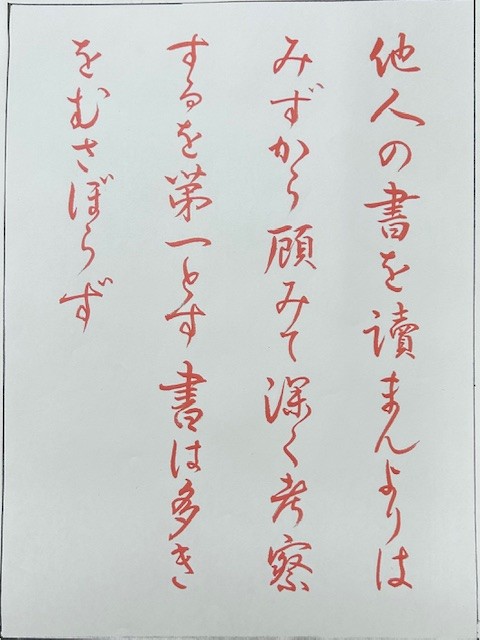 他人の書を讀まんよりは
みずから顧みて深く考察
するを第一とす書は多き
をむさぼらず